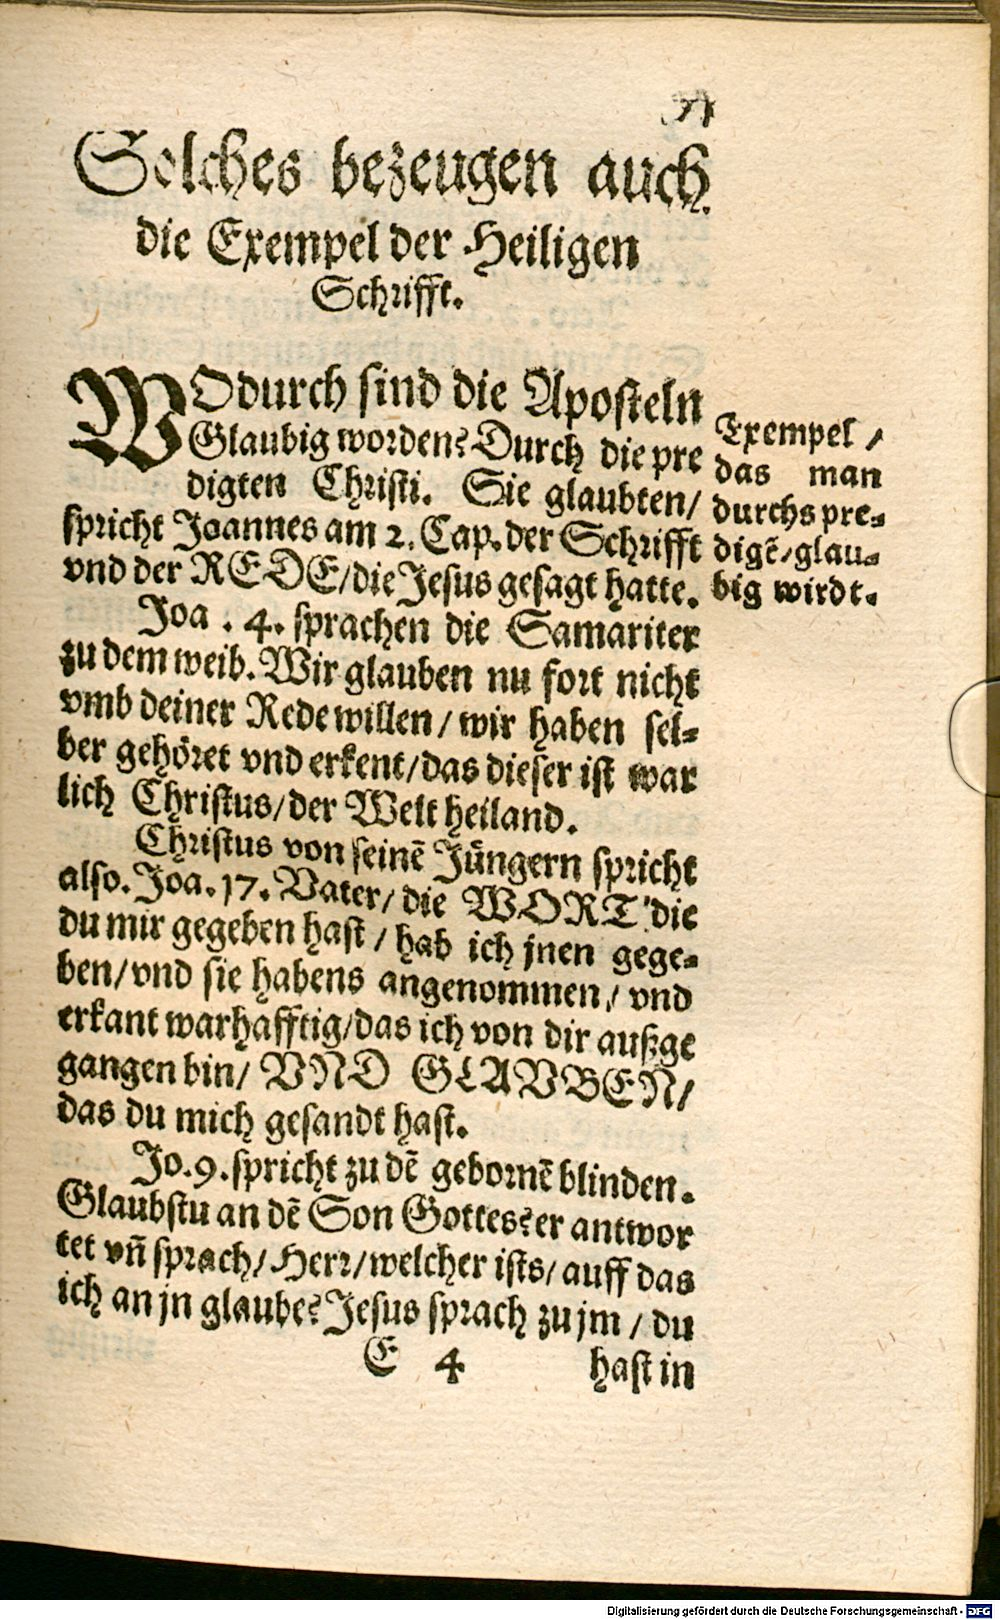 Solches bezeugen auch
die Exempel der Heiligen
Schrifft.
WOdurch sind die Aposteln
Glaubig worden? Durch die pre
digten Christi. Sie glaubten/
spricht Joannes am 2. Cap. der Schrifft
vnd der REDE/die Jesus gesagt hatte.
Joa . 4. sprachen die Samariter
zu dem weib. Wir glauben nu fort nicht
vmb deiner Rede willen / wir haben sel-
ber gehöret vnd erkent/das dieser ist war
lich Christus/der Welt heiland.
Christus von seinē Jüngern spricht
also. Joa. 17. Vater/ die WORT die
du mir gegeben hast / hab ich jnen gege-
ben/vnd sie habens angenommen/ vnd
erkant warhafftig/das ich von dir außge
gangen bin/ VND GLAVBEN/
das du mich gesandt hast.
Jo. 9. spricht zu dē gebornē blinden.
Glaubstu an dē Son Gottes? er antwor
tet vn̄ sprach/ Herr/welcher ists/ auff das
ich an jn glaube? Jesus sprach zu jm / du
E 4 hast in
Exempel /
das man
durchs pre-
digē/glau-
big wirdt.
Digitalisierung gefördert durch die Deutsche Forschungsgemeinschaft - DFG